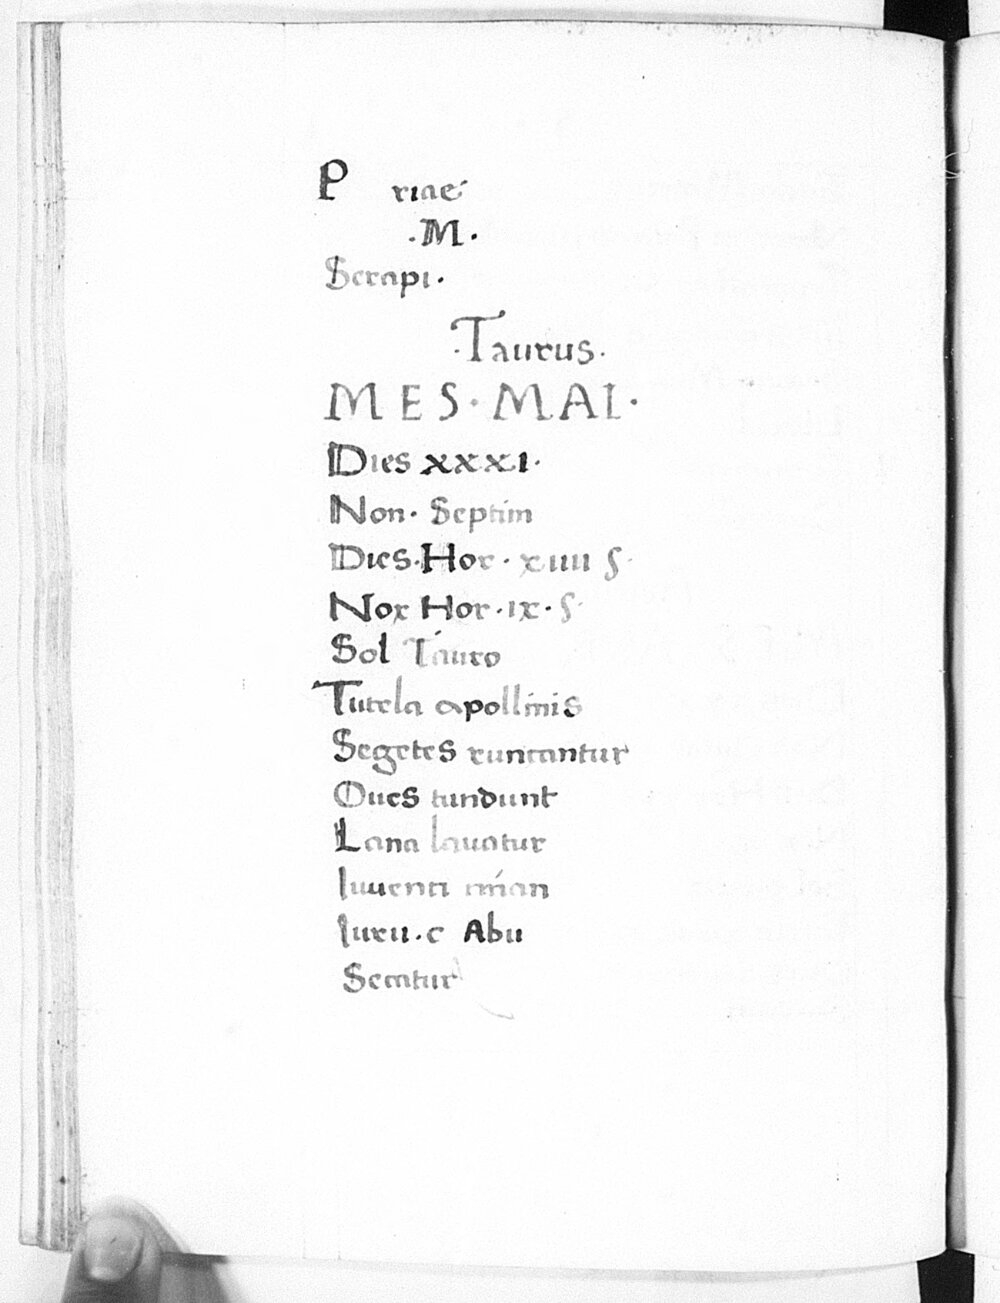 P riae
.M.
Serapi.
.Taurus.
MES. MAI.
Dies xxxi.
Non. Septim
Dies. Hor. xiiii S.
Nox Hor. ix. S
Sol Tauro
Tutela apollinis
Segetes runcantur
Oues tundunt
Lana lauatur
Iuuenci
Iuru. c Abu
Secatur